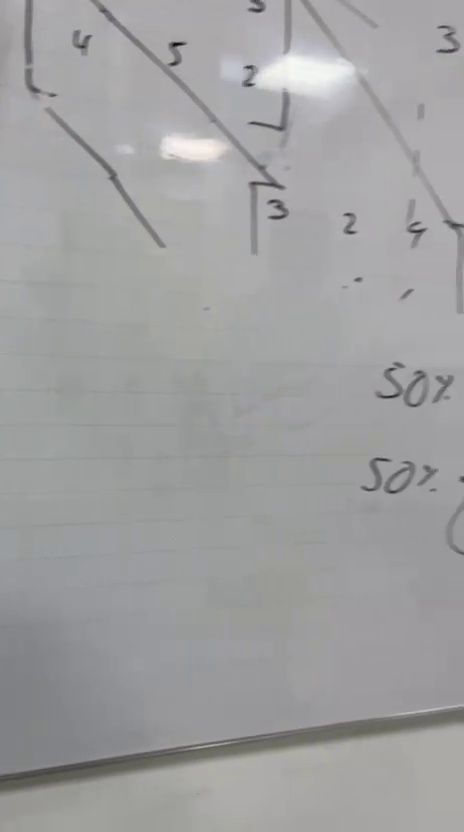 3
4 5 2
3 2 4
50%
50%